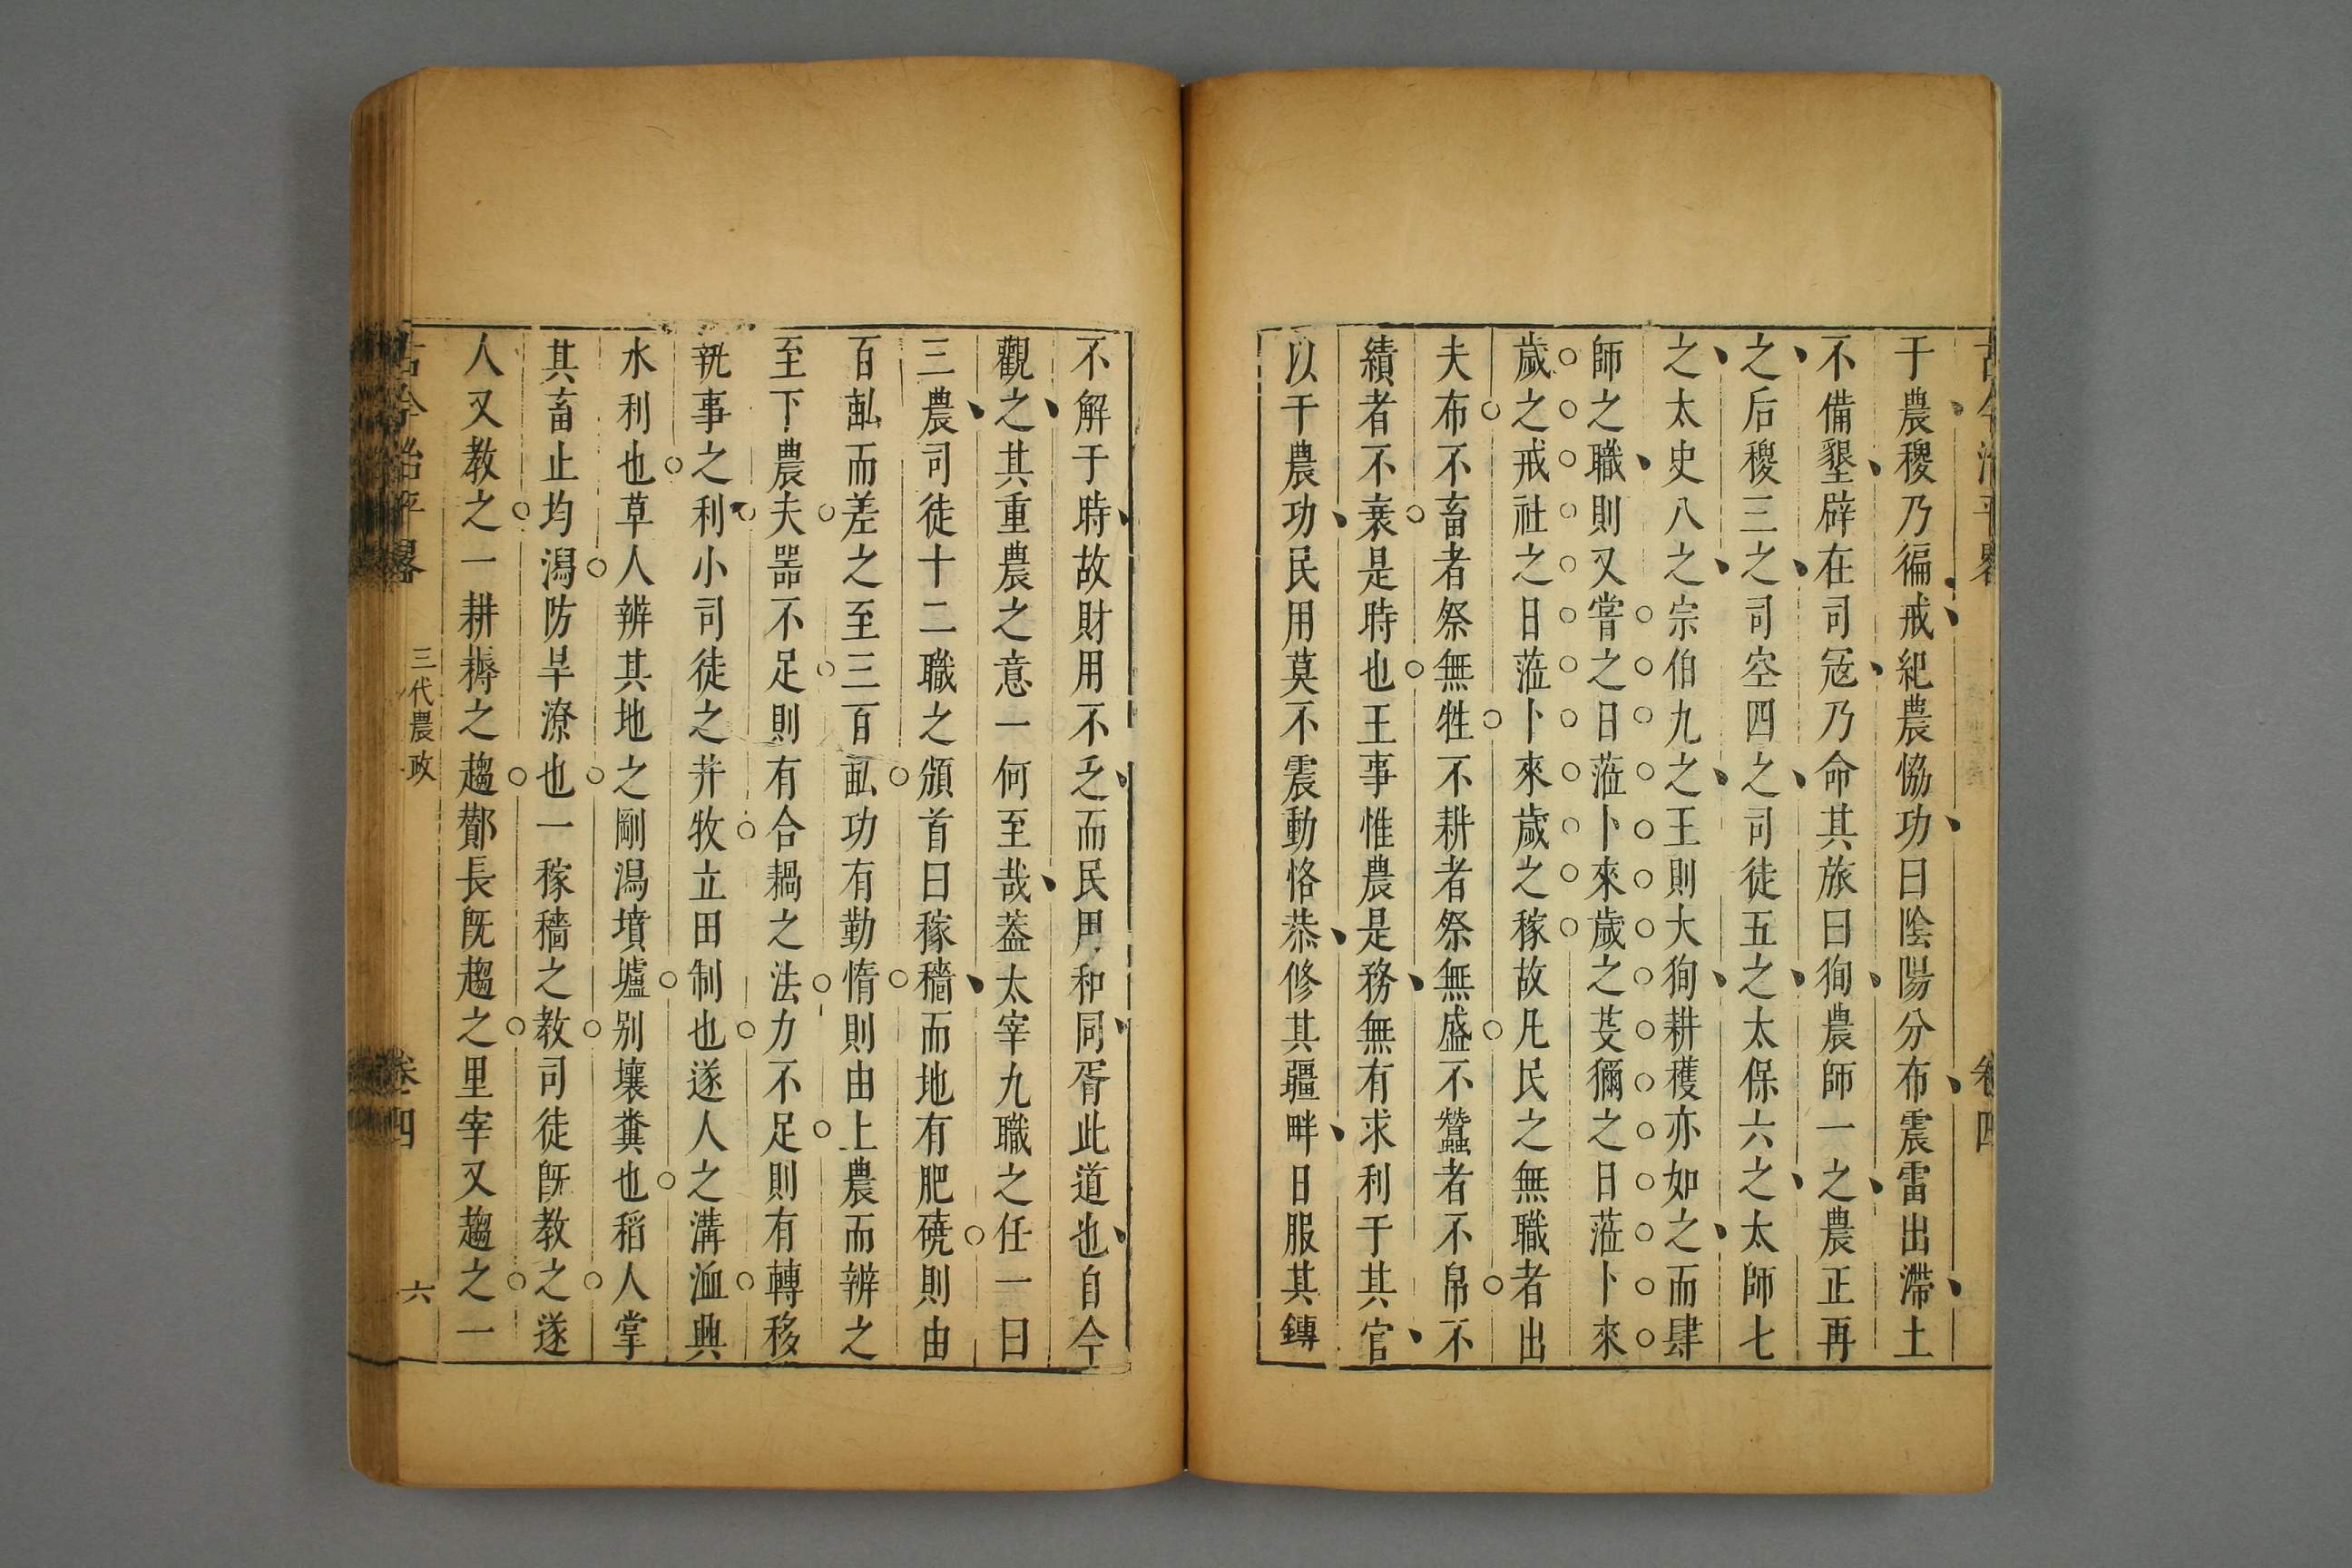 古今治平畧
卷四
于農稷乃徧戒紀農恊功曰陰陽分布震雷出滯土
不備墾辟在司寇乃命其旅曰狥農師一之農正再
之后稷三之司空四之司徒五之太保六之太師七
之太史八之宗伯九之王則大狥耕穫亦如之而肆
師之職則又嘗之日蒞卜來歲之芟獮之日蒞卜來
歲之戒社之日蒞卜來歲之稼故凡民之無職者出
夫布不畜者祭無牲不耕者祭無盛不蠶者不帛不
績者不衰是時也王事惟農是務無有求利于其官
以干農功民用莫不震動恪恭修其疆畔日服其鎛
不解于時故財用不乏而民用和同胥此道也自今
觀之其重農之意一何至哉蓋太宰九職之任一曰
三農司徒十二職之頒首曰稼穡而地有肥磽則由
百畝而差之至三百畝功有勤惰則由上農而辨之
至下農夫噐不足則有合耦之法力不足則有轉移
執事之利小司徒之井牧立田制也遂人之溝洫典
水利也草人辨其地之剛潟墳壚別壤糞也稻人掌
其畜止均潟防旱潦也一稼穡之教司徒既教之遂
人又教之一耕耨之趨酇長既趨之里宰又趨之一
古今治平畧
三代農政
卷四
六